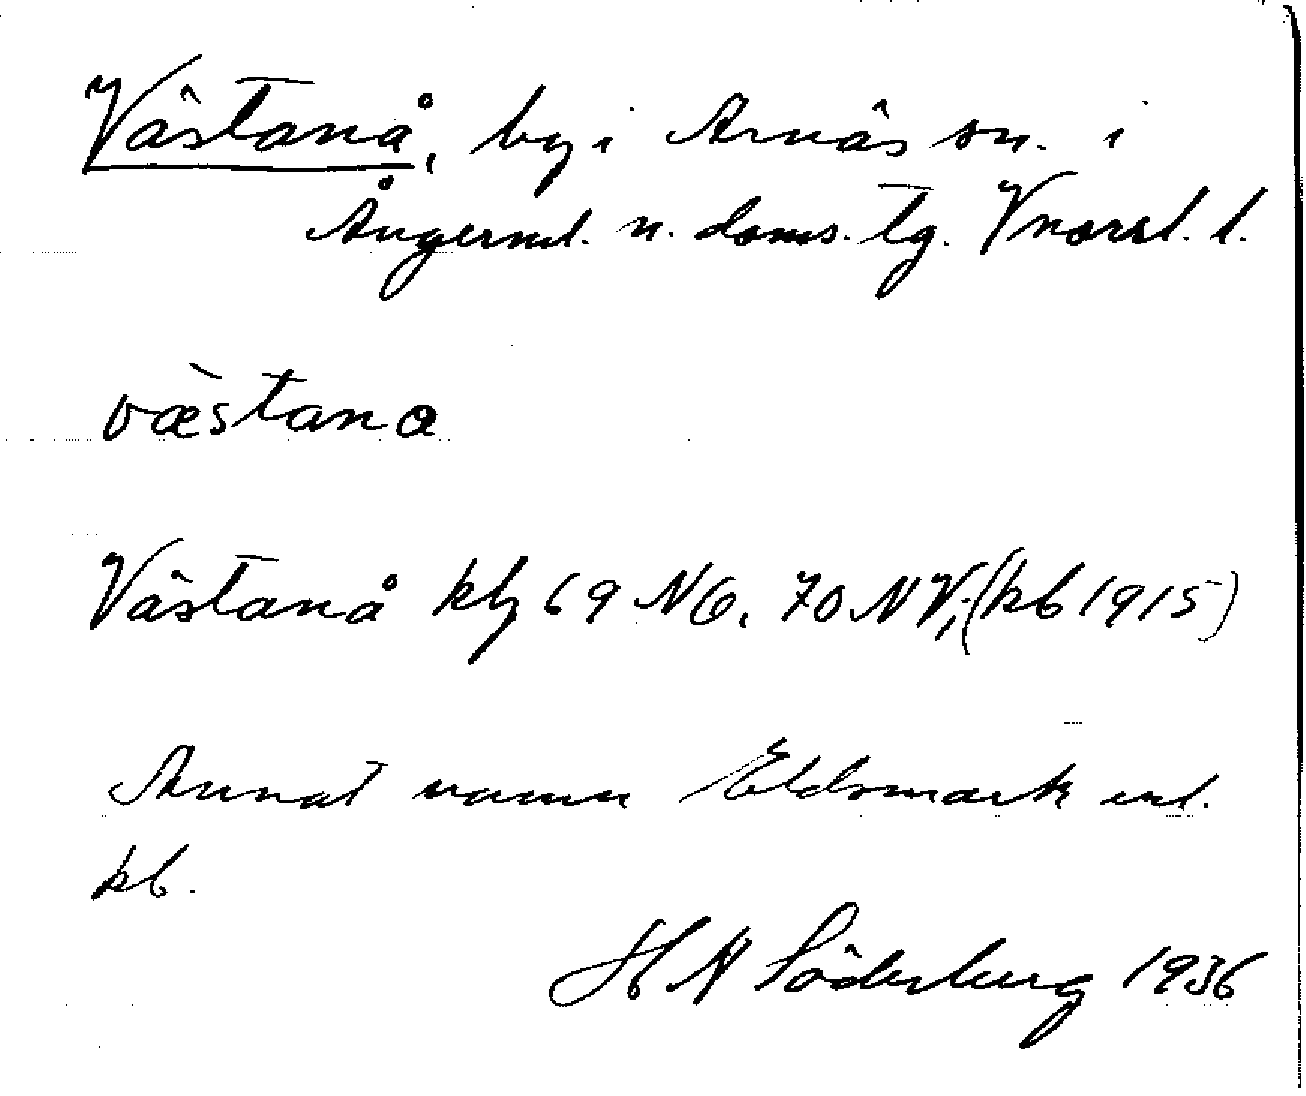 Västanå, by i Arnäs sn. i
Ångerml. n. doms. tg. Vnorrl. l.
væ̀stana
Västanå kbg 69 NO, 70 NV, (kb 1915)
Annat namn Eldsmark enl.
kb.
H N Söderberg 1936